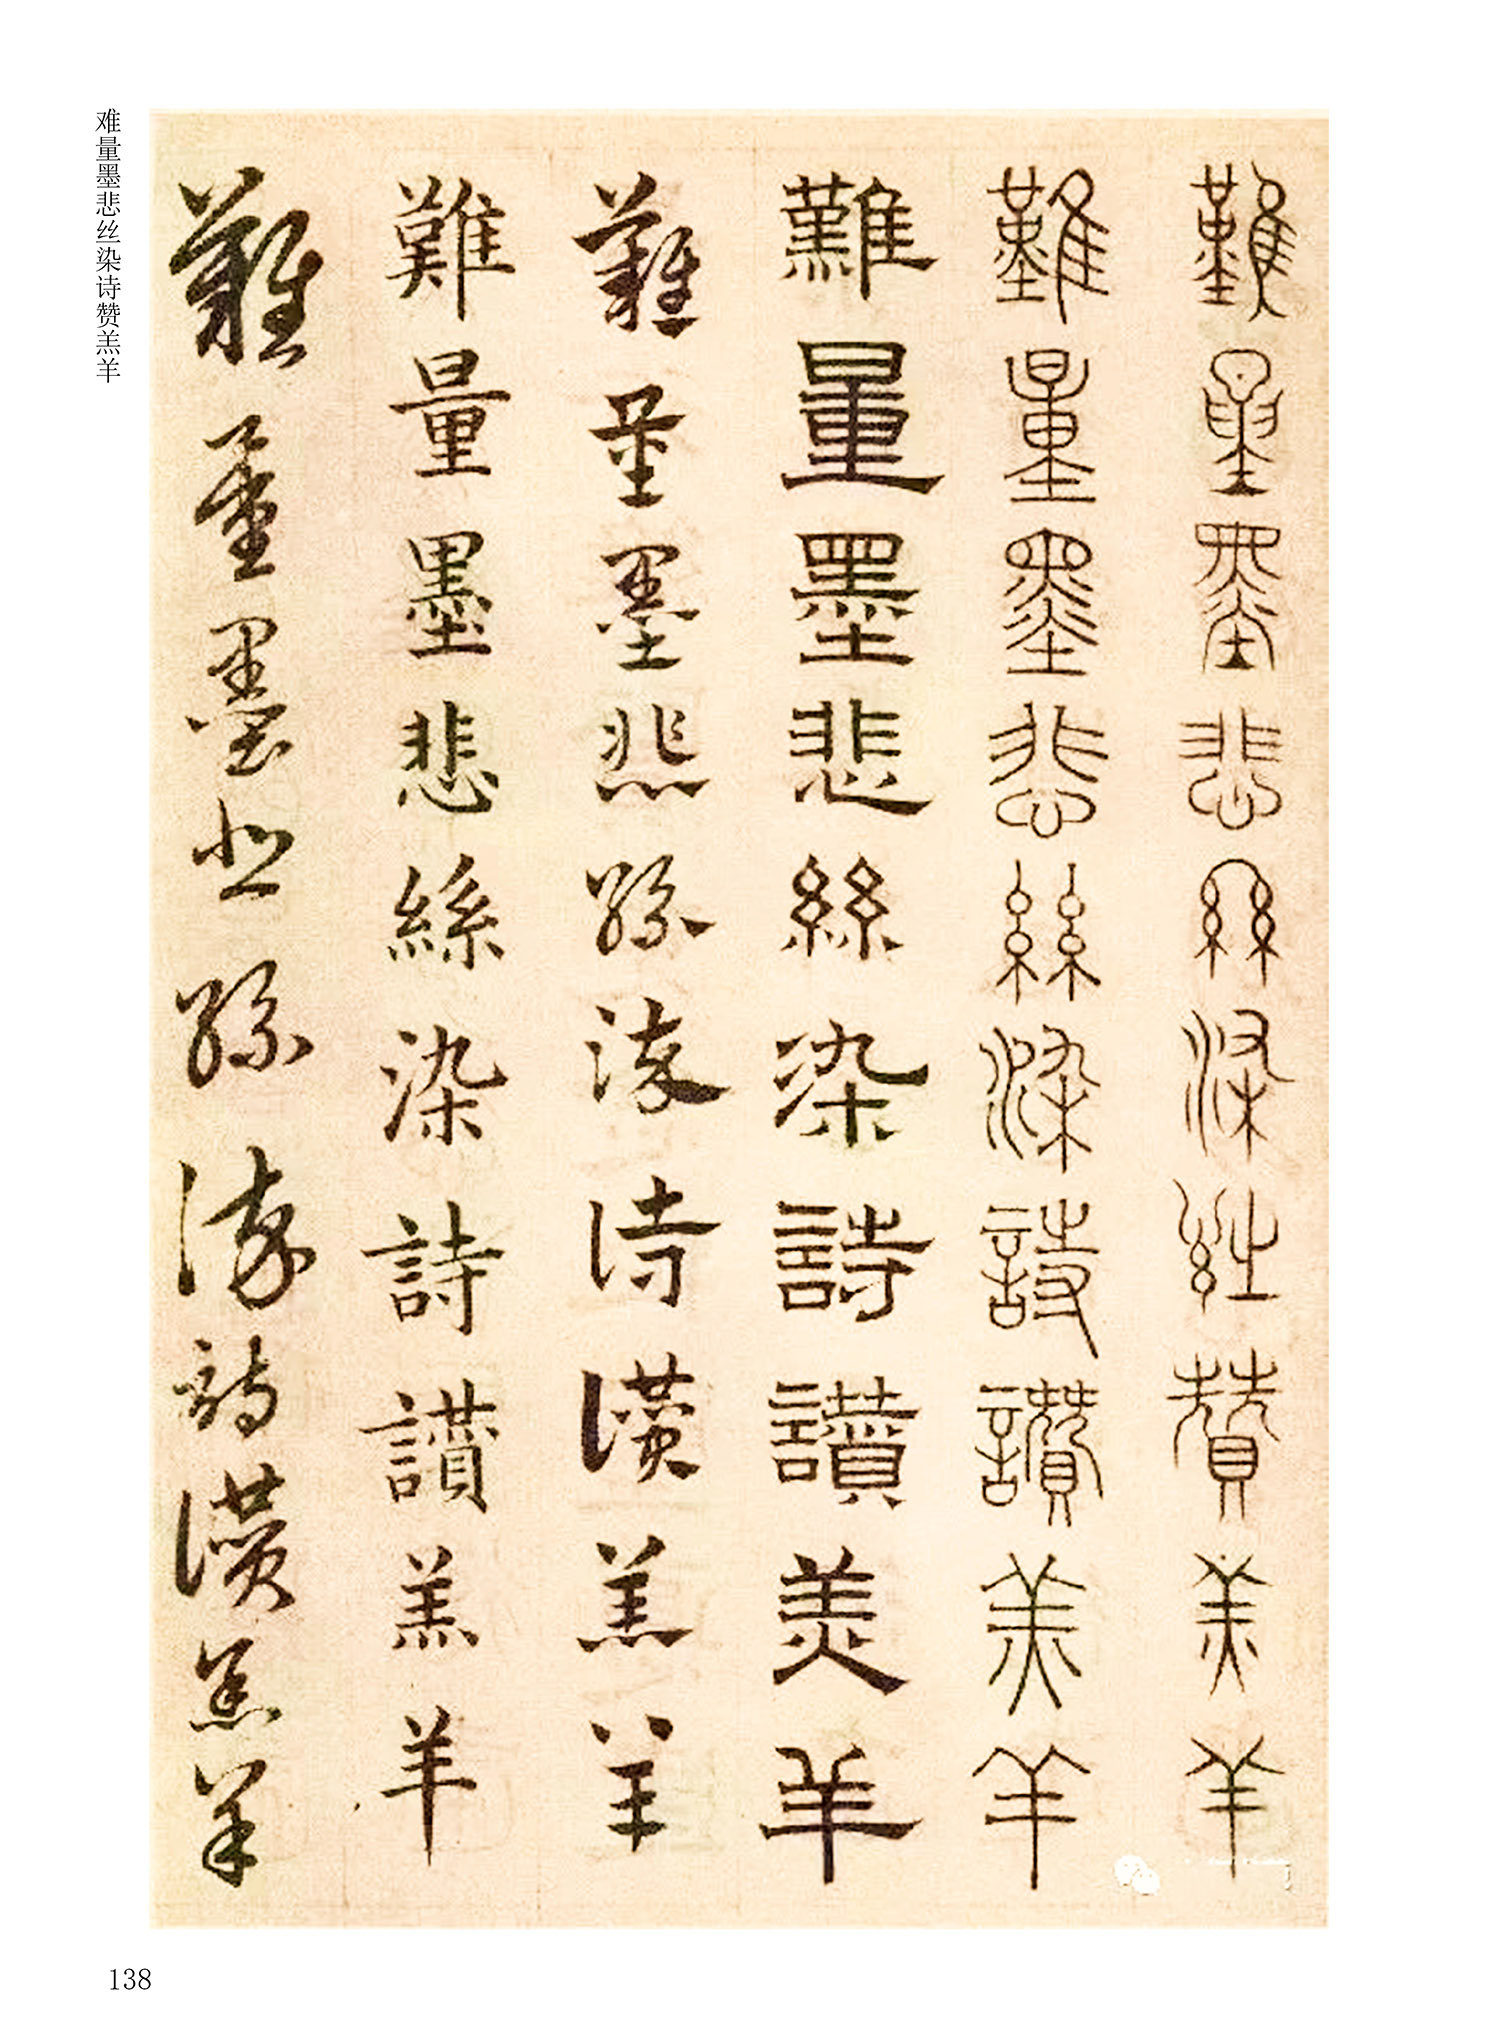 难量墨悲丝染诗赞羔羊
難量墨悲絲染詩讚羔羊
難量墨悲絲染詩讚羔羊
難量墨悲絲染詩讚羔羊
難量墨悲絲染詩讚羔羊
難量墨悲絲染詩讚羔羊
難量墨悲絲染詩讚羔羊
138